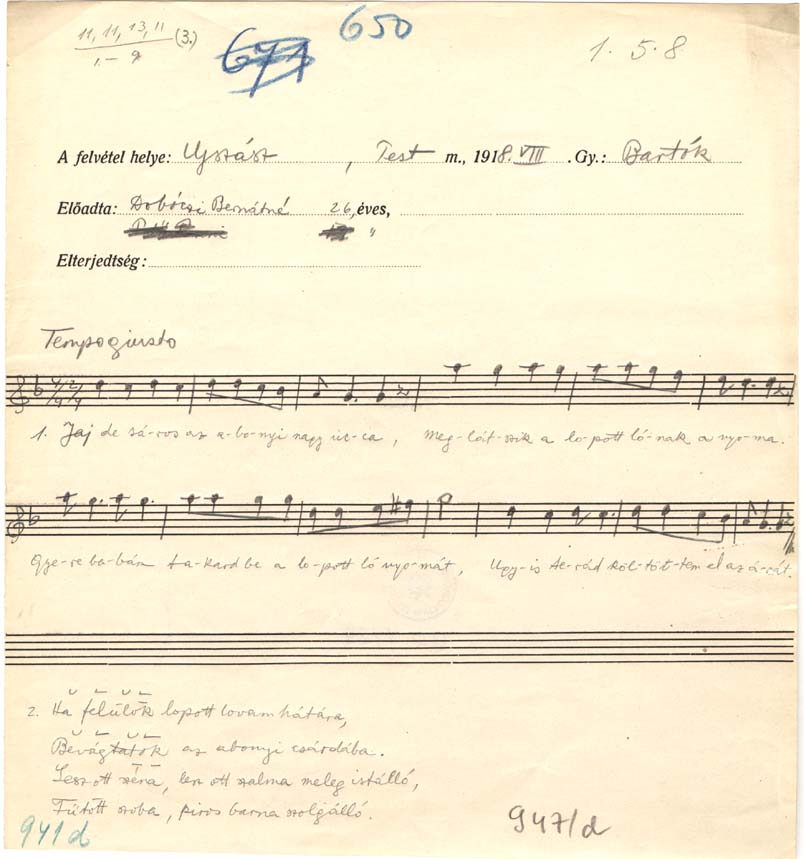 650
11, 11, 13, 11 (3.)
1.– 9
671
1 . 5 . 8
A felvétel helye: Ujszász, Pest m., 1918. VIII. Gy.: Bartók
Előadta: Dobóczi Bernátné 26, éves,
"
Elterjedtség:
Tempo giusto
4/4 2/4
1. Jaj de sá-ros az a-bo-nyi nagy uc-ca, Meg-lát-szik a lo-pott ló-nak a nyo-ma.
Gye-re ba-bám ta-kard be a lo-pott ló nyo-mát, Ugy-is te-rád köl-töt-tem el az á-rát.
2. Ha felülök lopott lovam hátára,
Bevágtatok az abonyi csárdába.
Lesz ott széna, lesz ott szalma meleg istálló,
Fűtött szoba, piros barna szolgálló.
941d
947/d